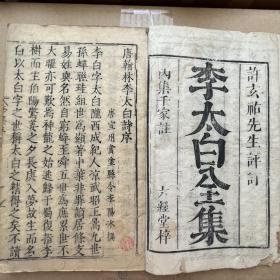 許玄祐先生評訂
李太白全集
內集千家註
六經堂梓
唐翰林李太白詩序
唐宣州當塗縣令李陽冰撰
李白字太白隴西成紀人涼武昭王暠九世
孫蟬聯珪組世為顯著中葉非罪謫居條支
易姓與名然自窮蟬至舜五世為庶累世不
大曜亦可歎焉神龍之始逃歸于蜀復指李
樹而生伯陽驚姜之夕長庚入夢故生而名
白以太白字之世稱太白之精得之矣不讀